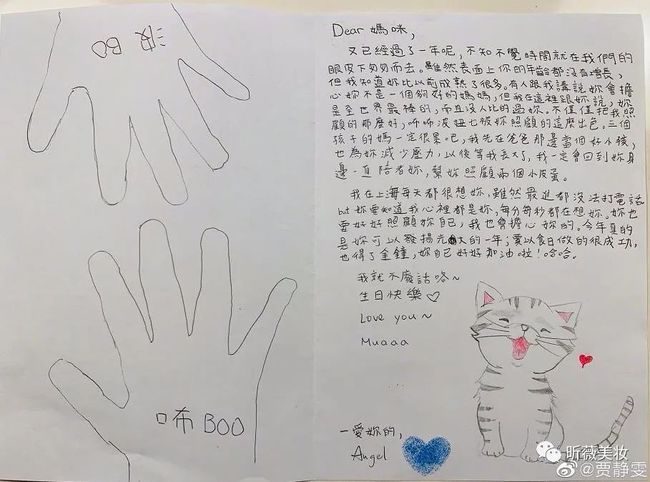 波 BO
咘 BOO
Dear 媽咪,
又已經過了一年呢,不知不覺時間就在我們的
眼皮下匆匆而去。雖然表面上你的年齡都沒有增長,
但我知道妳比以前成熟了很多。有人跟我講說妳會擔
心妳不是一個夠好的媽媽,但我在這裡跟妳說,妳
是全世界最棒的,而且沒人比的過妳,不僅僅把我照
顧的那麼好,咘咘波妞也被妳照顧的這麼出色。三個
孩子的媽一定很累吧,我先在爸爸那邊當個好小孩,
也為妳減少壓力,以後等我長大了,我一定會回到妳身
邊一直陪著妳,幫妳照顧兩個小皮蛋。
我在上海每天都很想妳,雖然最近都沒法打電話
but 妳要知道我心裡都是妳,每分每秒都在想妳。妳也
要好好照顧妳自己,我也會擔心妳的。今年真的
是妳可以發揚光大的一年;愛以食日做的很成功,
也得了金鐘,妳自己好好加油啦!哈哈。
我就不廢話咯~
生日快樂♡
Love you~
Muaaa
一愛妳的,
Angel
昕薇美妆
@贾静雯